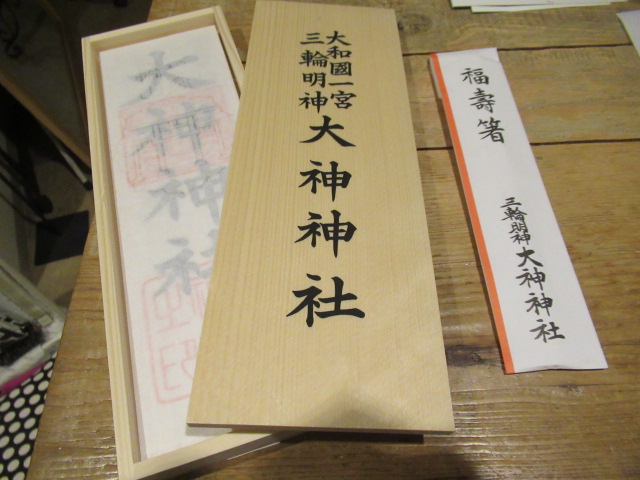 大和國一宮
三輪明神
大神神社
大神神社
福壽箸
三輪明神
大神神社